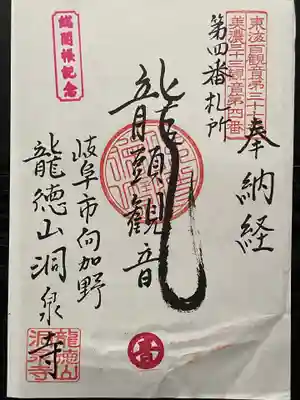 東海百観音第三十
美濃三十三観音第四番
奉納経
第四番札所
龍頭観音
岐阜市向加野
龍徳山洞泉寺
総開帳記念
龍徳山
洞泉寺